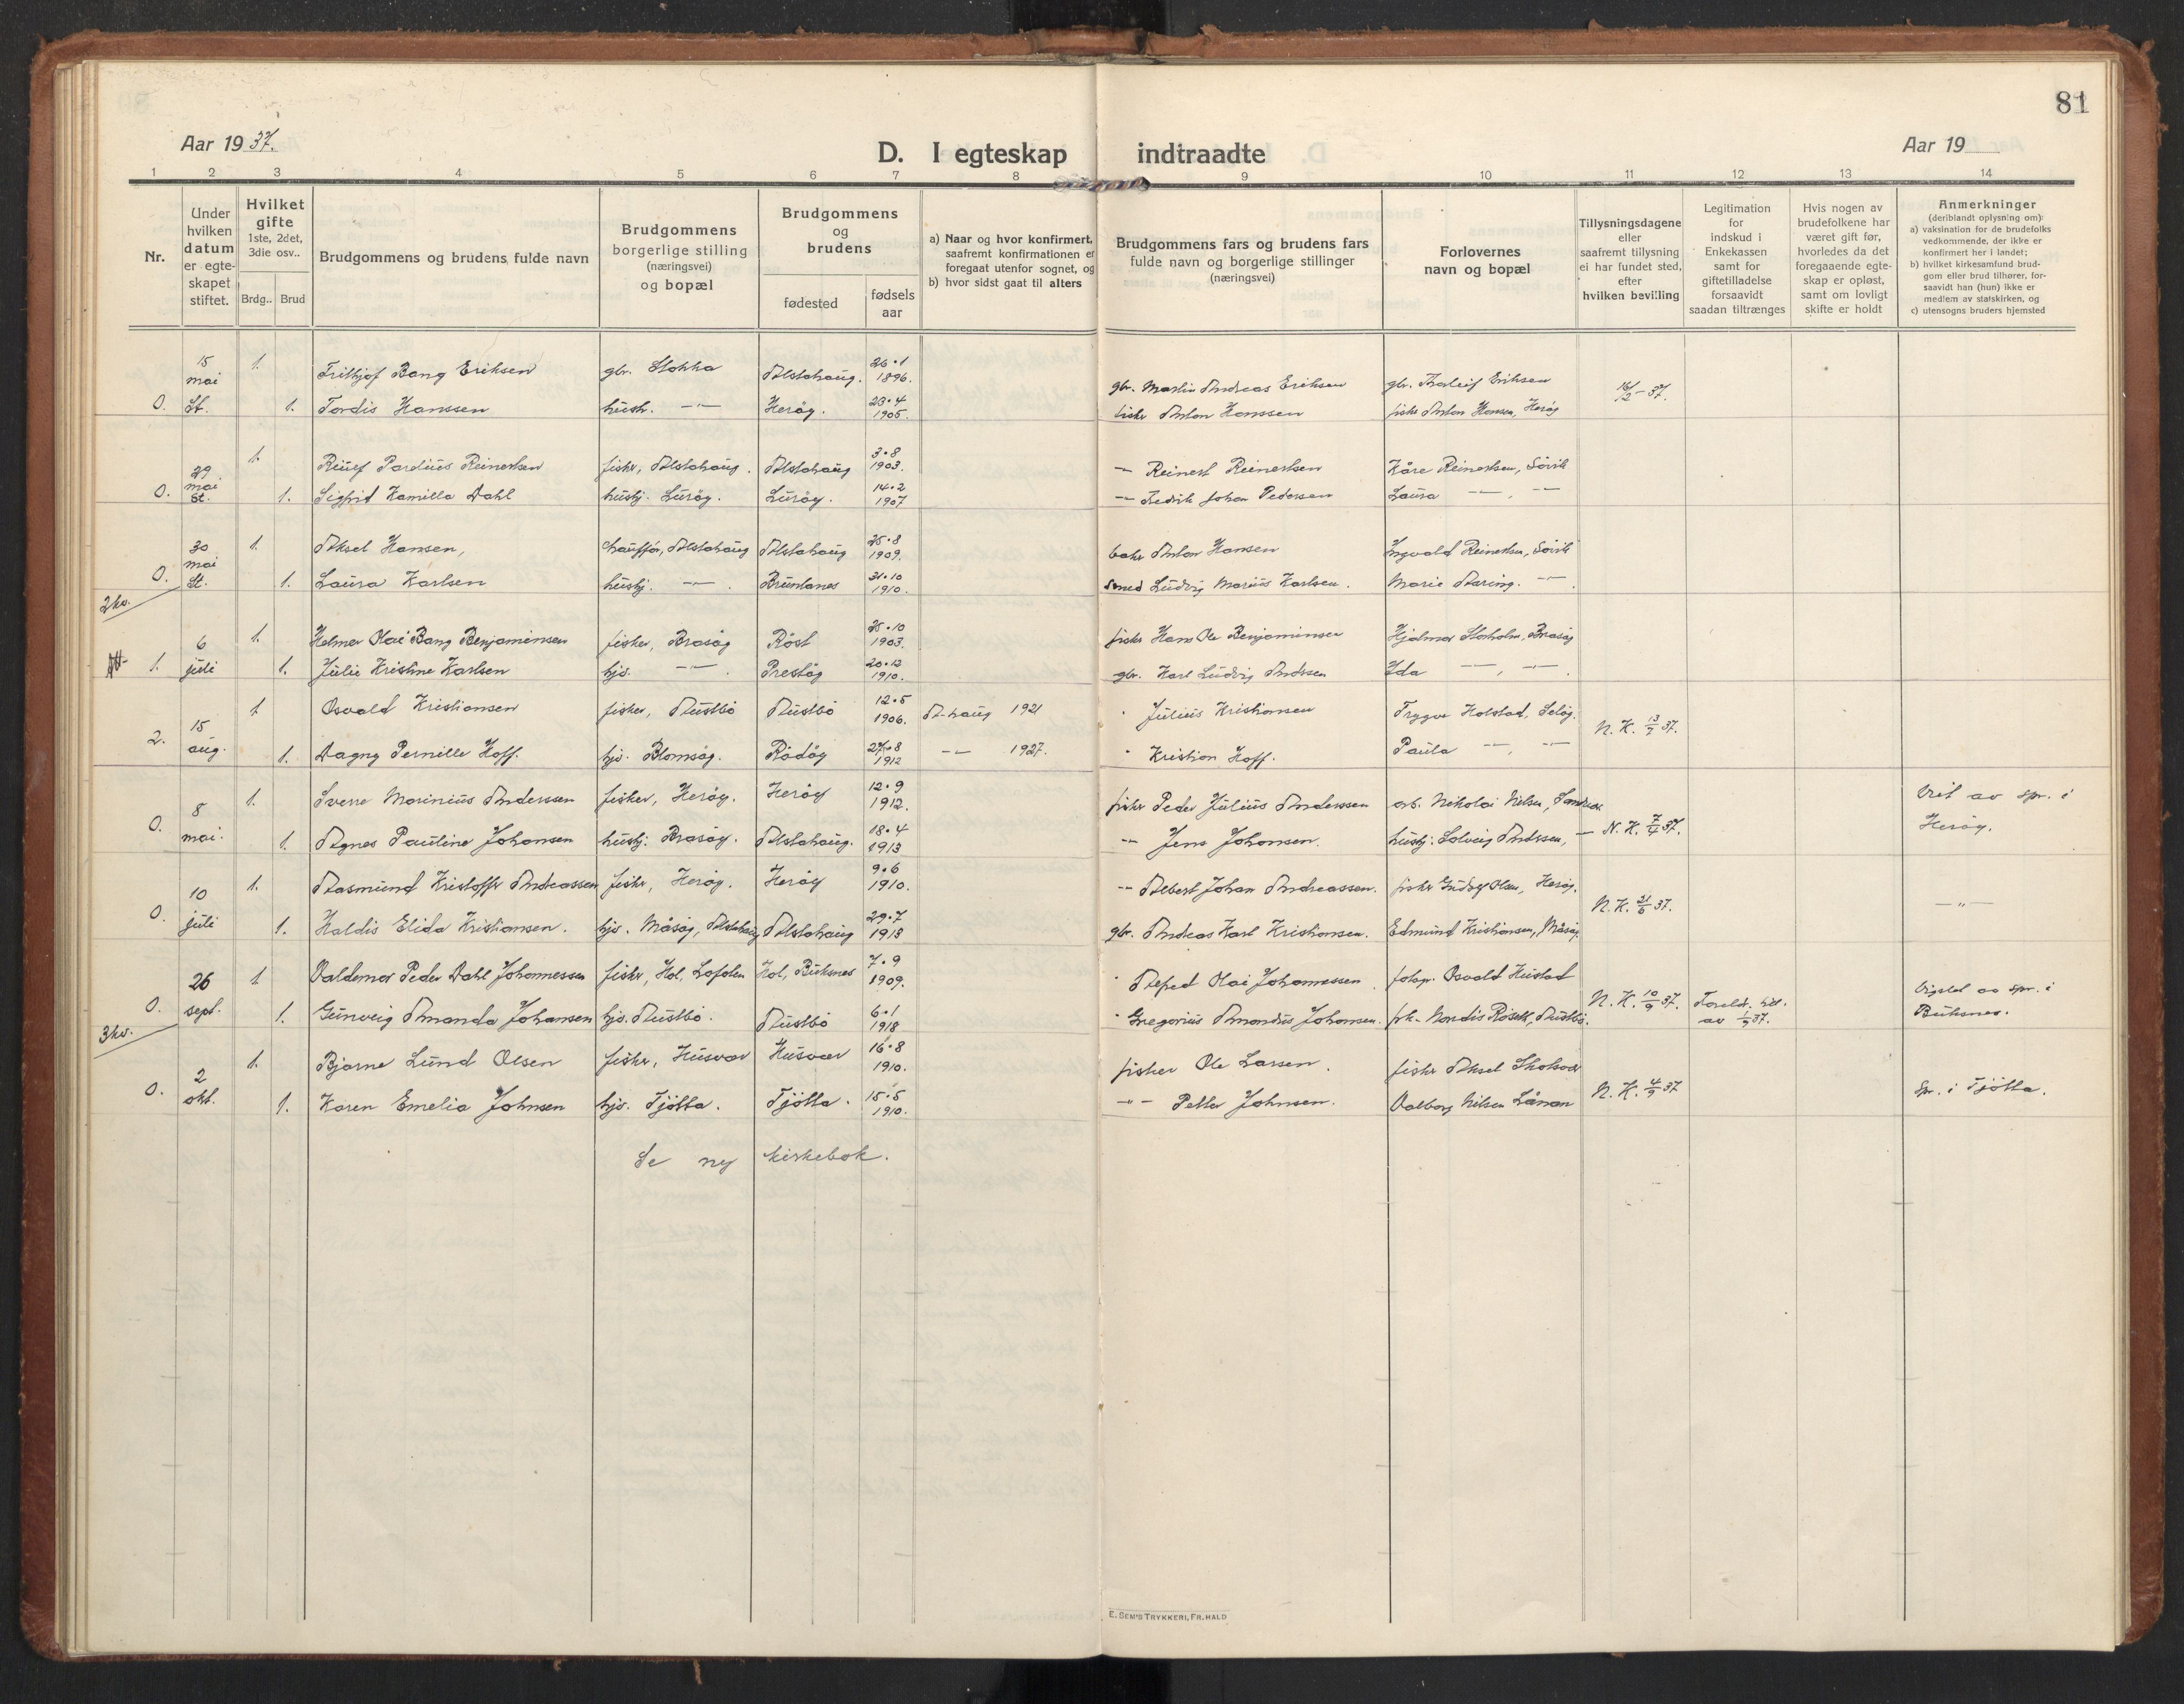 81
Aar 1937.
D. I egteskap indtraadte
Aar 19
1 2 3 4 5 6 7 8 9 10 11 12 13 14
Nr.
Under hvilken datum er egteskapet stiftet.
Hvilket gifte 1ste, 2det, 3die osv..
Brdg.. Brud
Brudgommens og brudens fulde navn
Brudgommens borgerlige stilling (næringsvei) og bopæl
Brudgommens og brudens
fødested
fødsels aar
a) Naar og hvor konfirmert, saafremt konfirmationen er foregaat utenfor sognet, og
b) hvor sidst gaat til alters
Brudgommens fars og brudens fars fulde navn og borgerlige stillinger (næringsvei)
Forlovernes navn og bopæl
Tillysningsdagene eller saafremt tillysning ei har fundet sted, efter hvilken bevilling
Legitimation for indskud i Enkekassen samt for giftetilladelse forsaavidt saadan tiltrænges
Hvis nogen av brudefolkene har været gift før, hvorledes da det foregaaende egteskap er opløst, samt om lovligt skifte er holdt
Anmerkninger (deriblandt oplysning om):
a) vaksination for de brudefolks vedkommende, der ikke er konfirmert her i landet;
b) hvilket kirkesamfund brudgom eller brud tilhører, forsaavidt han (hun) ikke er medlem av statskirken, og
c) utensogns bruders hjemsted
15 mai 1. Frithjof Bang Eriksen gbr. Stokka Alstahaug. 26.1 1896. gbr. Martin Andreas Eriksen gbr. Thorleif Eriksen 16/2-37.
0. St. 1. Tordis Hanssen hush. -"- Herøy. 23.4 1905. fisker Anton Hanssen fisker Anton Hansen, Herøy
29 mai 1. Reinert Reinertsen fisker, Alstahaug. Alstahaug 3.8 1903. -"- Reinert Reinertsen Kåre Reinertsen, Søvik
0. St. 1. Sigfrid Kamilla Dahl hushj. Lurøy. Lurøy. 14.2 1907 -"- Fredrik Johan Pedersen Laura -"-, -"-
30 mai 1. Aksel Hansen, chauffør, Alstahaug Alstahaug 25.8 1909. baker Anton Hansen Ingvald Reinertsen, Søvik
0. St. 1. Laura Karlsen hushj. -"-. 31.10 1910. smed Ludvig Marius Karlsen. Marie -"-.
2 kv.
6 juli 1. Helmer Olai Bang Benjaminsen fisker, Brasøy Røst 25.10 1903. fisker Hans Ole Benjaminsen Hjalmar Storholm, Brasøy
1. 1. Julie Kristine Karlsen hjs. -"-. Prestøy 20.12 1910. gbr. Karl Ludvig Anderssen Ida -"-, -"-.
15 aug. 1. Osvald Kristiansen fisker, Austbø Austbø 12.5 1906. A-haug 1921 " Julius Kristiansen Trygve Holstad, Seløy. N. K. 13/7 37.
2. 1. Dagny Pernille Hoff. hjs. Blomsøy. Rødøy 27.8 1912 -"- 1927. " Kristian Hoff. Paula -"-, -"-
8 mai. 1. Sverre Marinius Anderssen fisker, Herøy. Herøy 12.9 1912. fisker Peder Julius Anderssen arb. Nikolai Nilsen, Viet av spr. i Herøy.
0. 1. Agnes Pauline Johansen hushj. Brasøy. Alstahaug. 18.4 1913 -"- Jens Johansen. hushj. Solveig Anderssen, - N. K. 7/4 37.
10 juli 1. Aasmund Kristoffer Andreassen fisker, Herøy. Herøy 9.6 1910. -"- Albert Johan Andreassen. fisker Olsen, Herøy. N. K. 21/6 37. -"-
0. 1. Haldis Elida Kristiansen. hjs. Måsøy, Alstahaug Alstahaug 29.7 1913 gbr. Andreas Karl Kristiansen. Edmund Kristiansen, Måsøy
26 sept. 1. Valdemar Peder Dahl Johannessen fisker, Hol, Lofoten Hol, Buksnes 7.9 1909. " Alfred Olai Johannessen. Osvald Hustad Vigslet av spr. i Buksnes.
0. 1. Gunveig Amanda Johansen hjs. Austbø. Austbø 6.1 1918 " Gregorius Amandus Johansen. frk. Nordis Røsok, Austbø. N. K. 10/9 37. Foreldr. till. av 1/9 37.
3 kv.
2 okt. 1. Bjarne Lund Olsen fisker, Husvær Husvær 16.8 1910. fisker Ole Larsen. fisker Aksel Skotsvær
0. 1. Karen Emelia Johnsen hjs. Tjøtta. Tjøtta. 15.5 1910. -"- Petter Johnsen. Valborg Nilsen Lånan N. K. 4/9 37 Spr. i Tjøtta.
Se ny kirkebok.
E. SEM'S TRYKKERI, FR. HALD